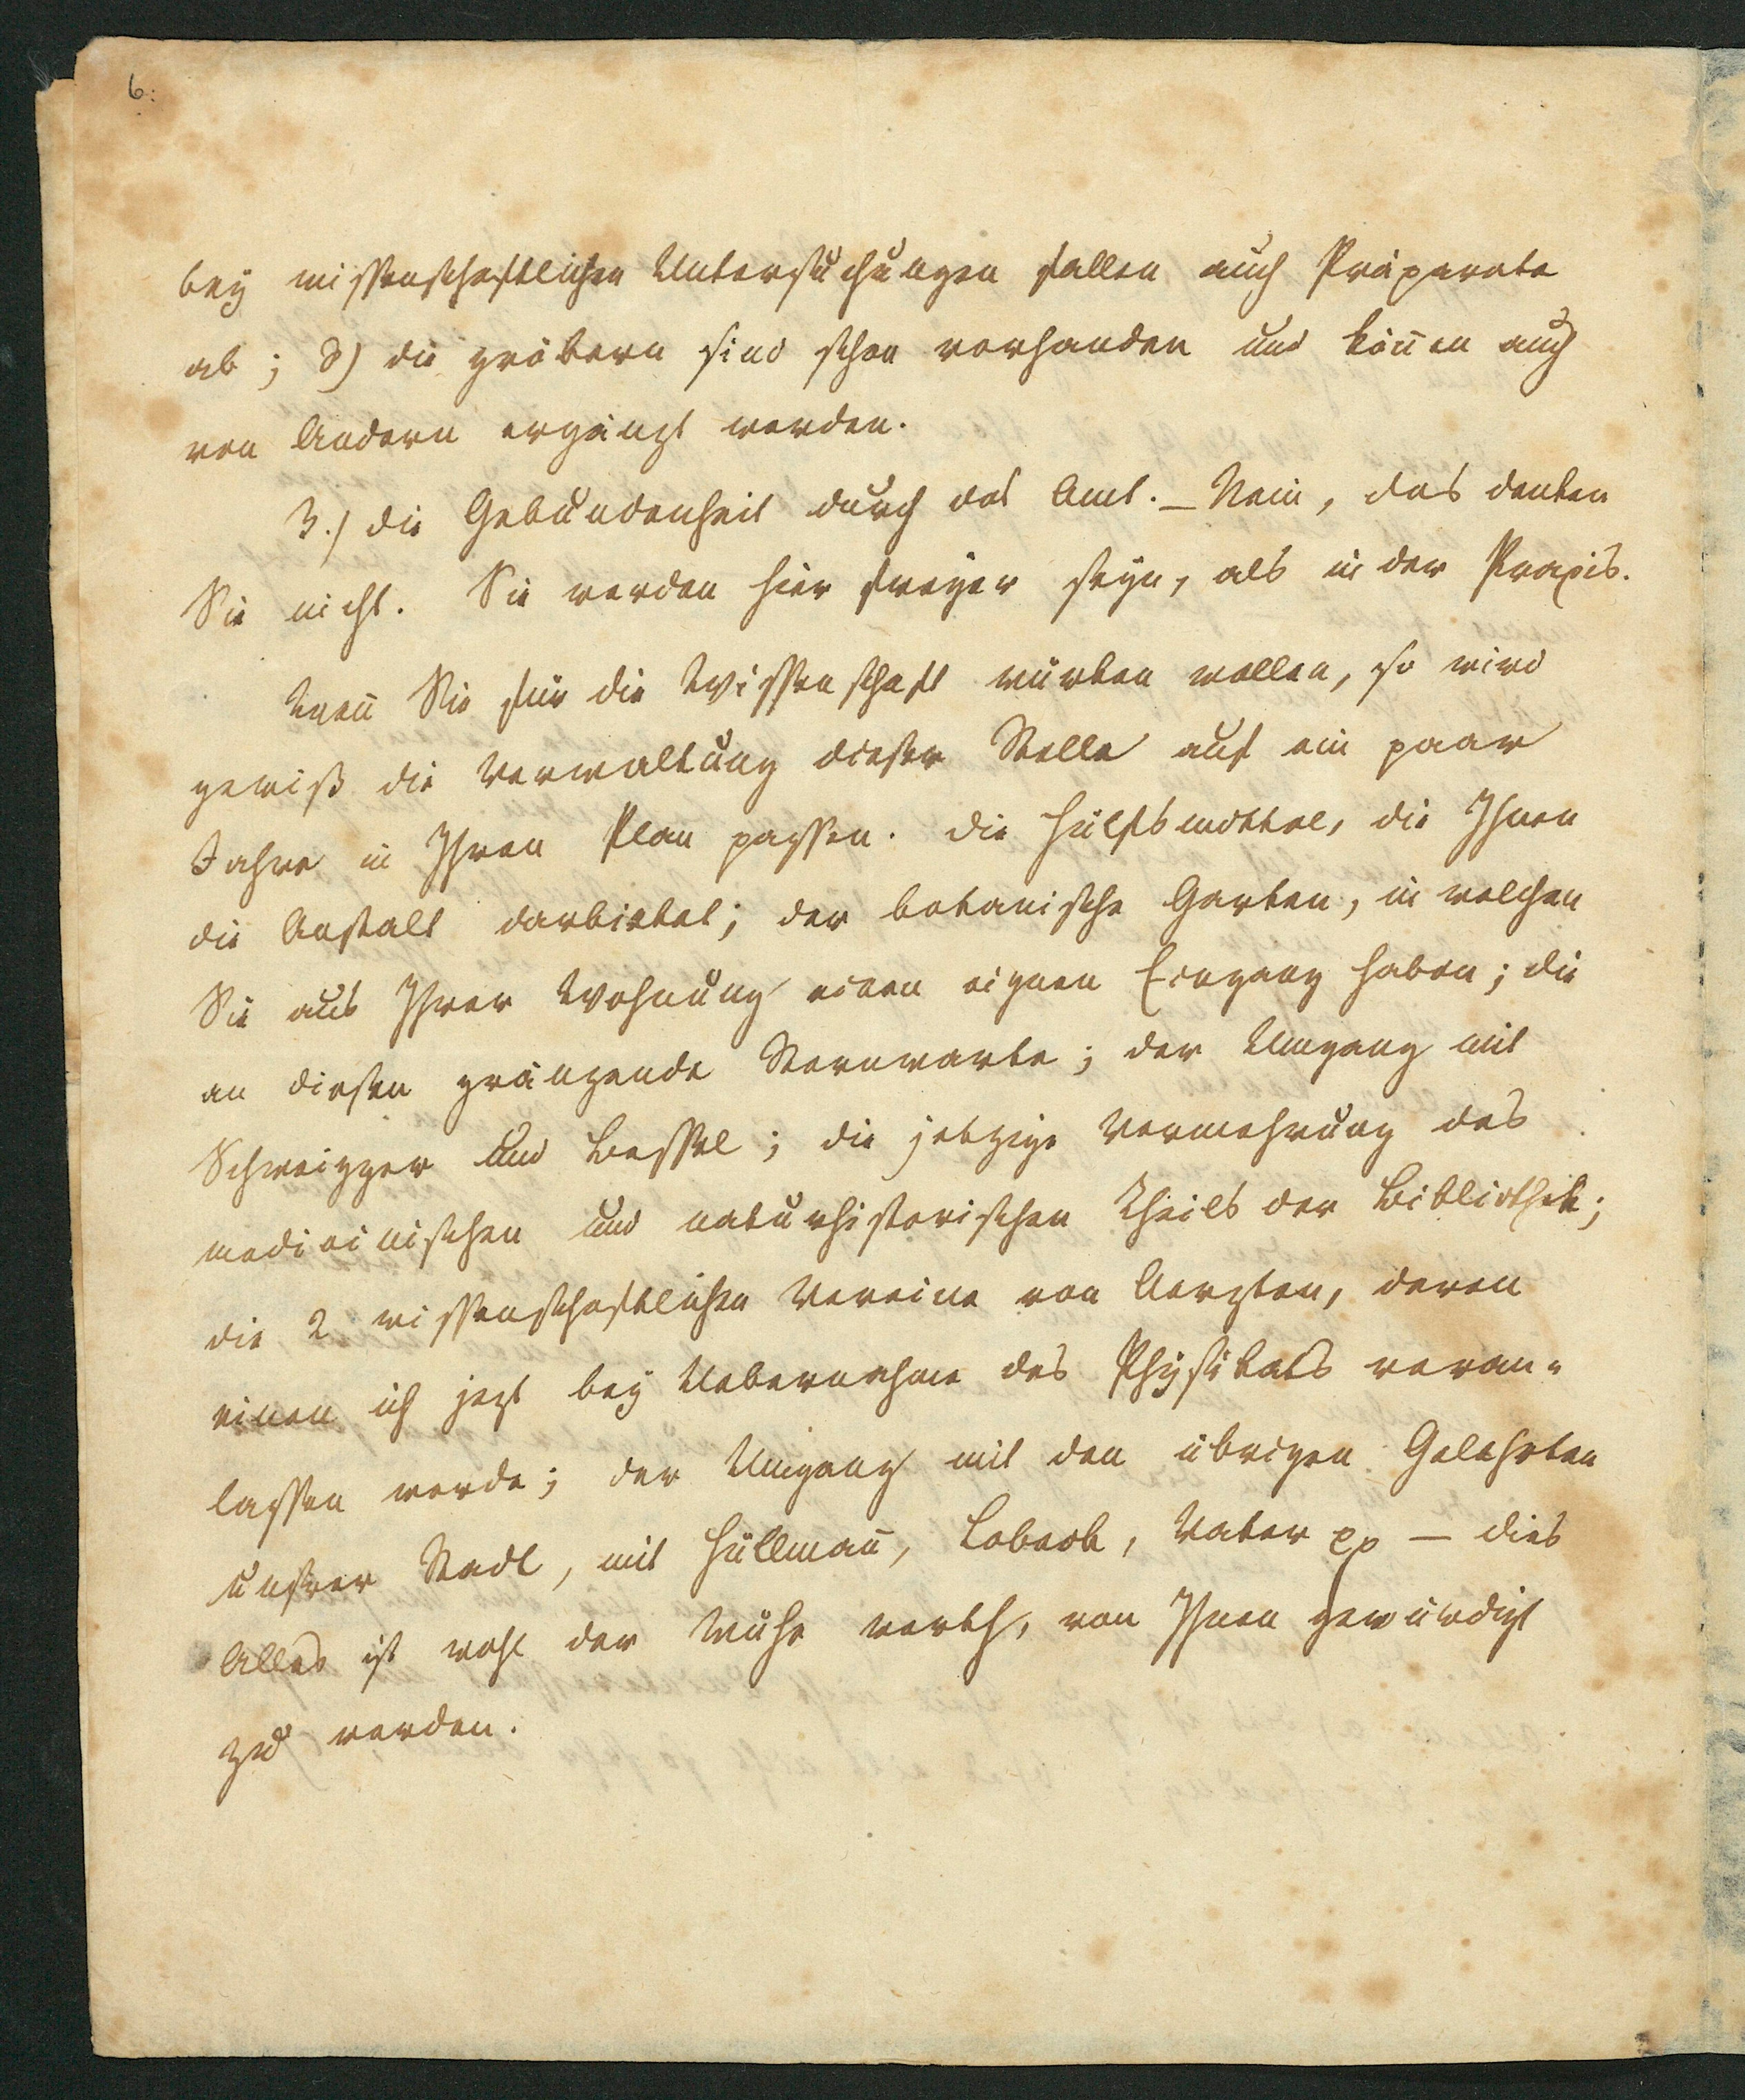 6.
bey wissenschaftlichen Untersuchungen fallen auch Präparate
ab; δ) die gröbern sind schon vorhanden und können auch
von Andern ergänzt werden.
3.) die Gebundenheit durch das Amt. – Nein, das denken
Sie nicht. Sie werden hier freyer seyn, als in der Praxis.
Wenn Sie für die Wissenschaft würken wollen, so wird
gewiß die Verwaltung dieser Stelle auf ein paar
Jahre in Ihren Plan passen. Die Hülfsmittel, die Ihnen
die Anstalt darbietet; der botanische Garten, in welchen
Sie aus Ihrer Wohnung einen eignen Eingang haben; die
an diesen gränzende Sternwarte; der Umgang mit
Schweigger und Bessel; die jetzige Vermehrung des
medicinischen und naturhistorischen Theils der Bibliothek;
die 2 wissenschaftlichen Vereine von Aerzten, deren
einen ich jezt bey Uebernahme des Physikats veran-
lassen werde; der Umgang mit den übrigen Gelehrten
unsrer Stadt, mit Hüllmann, Lobeck, Vater pp – dies
Alles ist wohl der Mühe werth, von Ihnen gewürdigt
zu werden.